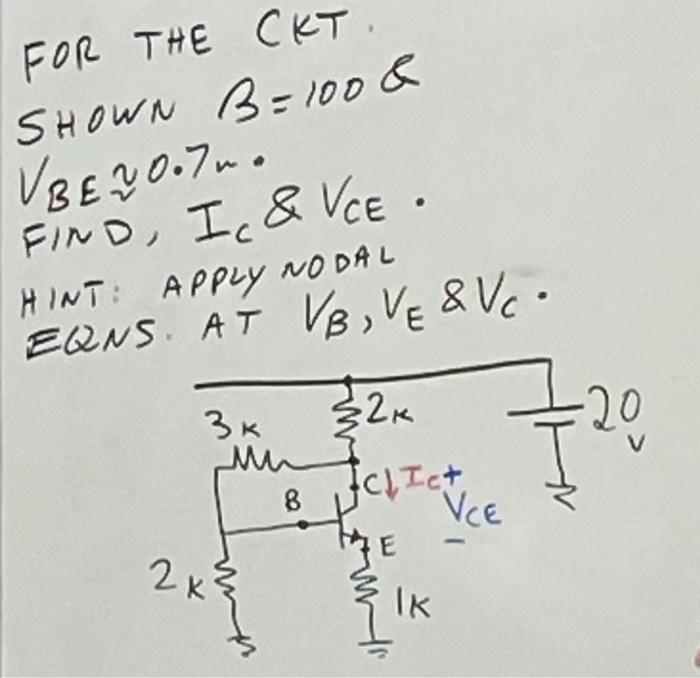 FOR THE CKT.
SHOWN β=100 &
VBE≈0.7v.
FIND, Ic & VCE.
HINT: APPLY NODAL
EQNS. AT VB, VE & Vc.
3K
2K
20
V
B
C↓Ic+
VCE
-
E
2K
1K